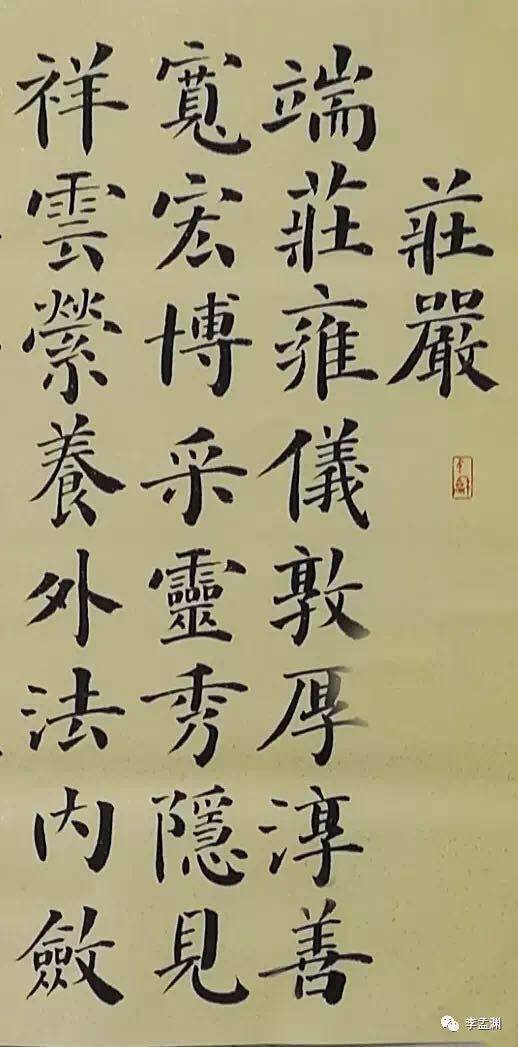 莊嚴
端莊雍儀敦厚淳善
寬宏博采靈秀隱見
祥雲縈養外法內斂
李孟渊